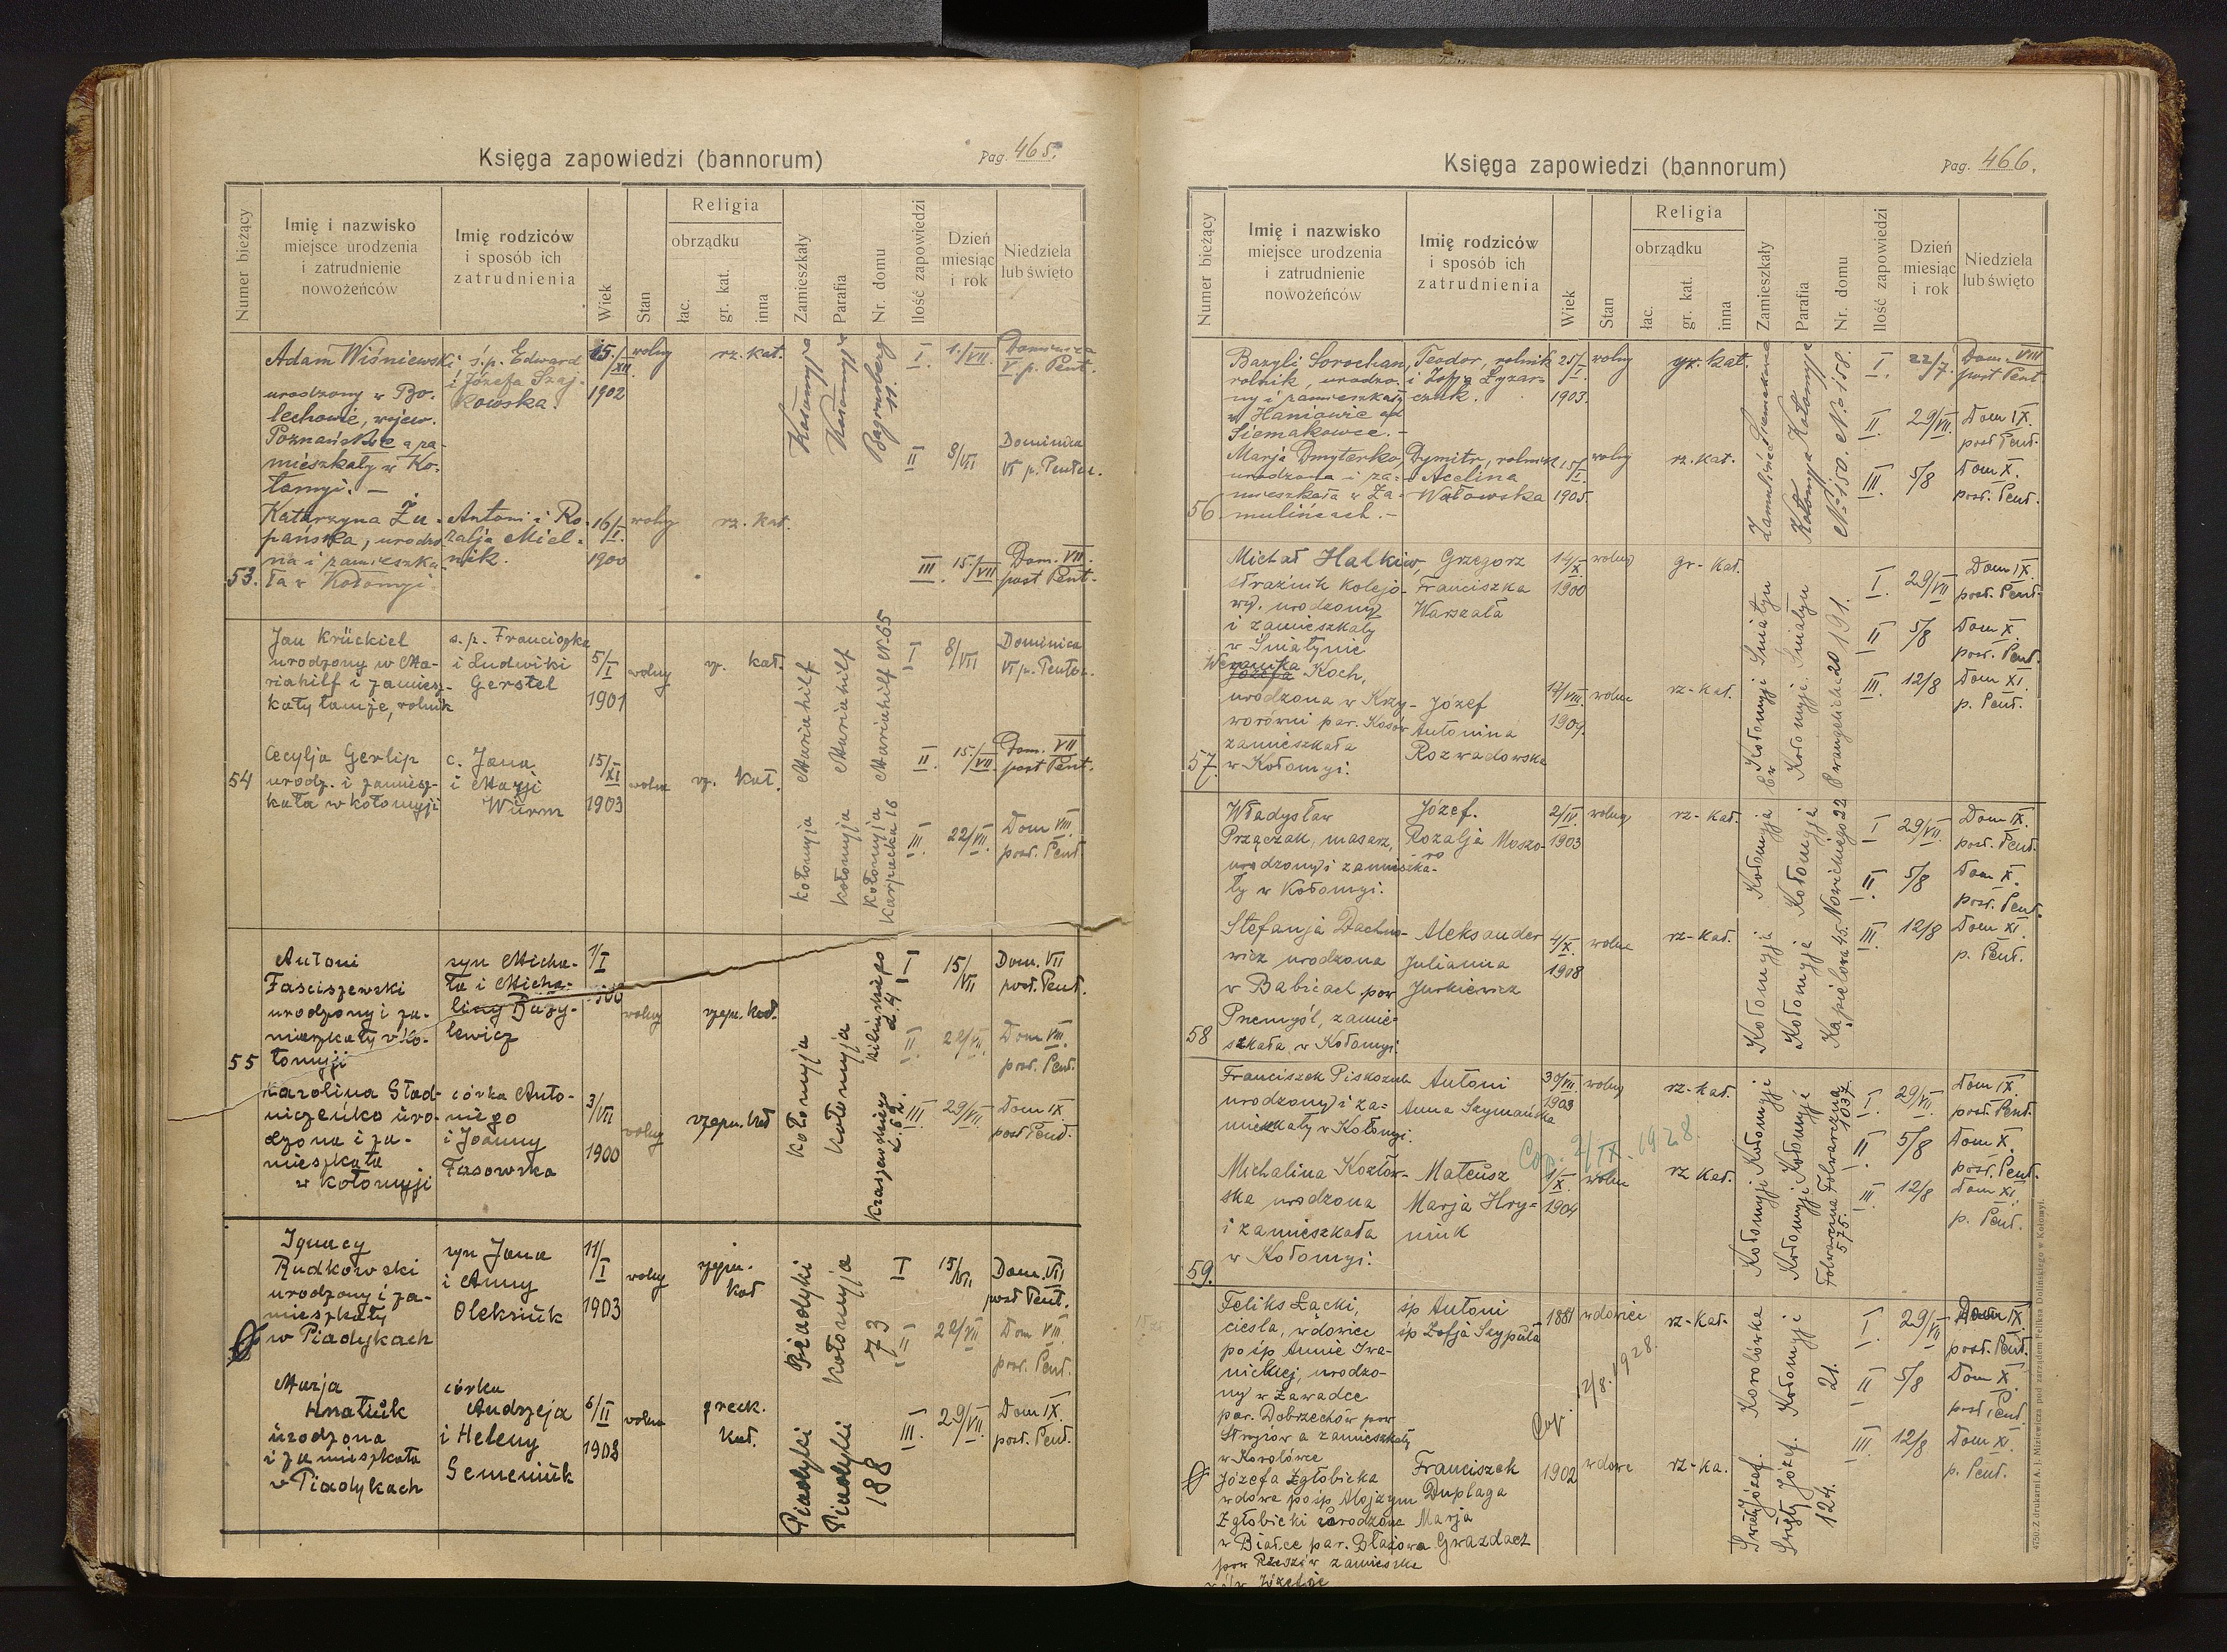 Księga zapowiedzi (bannorum)
Pag. 465.
Numer bieżący
Imię i nazwisko
miejsce urodzenia
i zatrudnienie
nowożeńców
Imię rodziców
i sposób ich
zatrudnienia
Wiek
Stan
Religia
obrządku
łac.
gr. kat.
inna
Zamieszkały
Parafia
Nr. domu
Ilość zapowiedzi
Dzień
miesiąc
i rok
Niedziela
lub święto
53.
Adam Wiśniewski,
urodzony w Bo-
lechowie, wojew.
Poznańskie a za-
mieszkały w Ko-
łomyi. —
ś.p. Edward
i Józefa Szaj-
kowska.
15./XII.
1902
wolny
rz. kat.
Kołomyja
Kołomyja
11.
I. 1./VII. Dominica
V p. Pent.
II 8/VII Dominica
VI p. Pentec.
III 15./VII Dom. VII.
post Pent.
Katarzyna Żu-
pańska, urodzo
na i zamieszka-
ła w Kołomyi.
Antoni i Ro-
zalja Miel-
nik.
16/I.
1900
wolny
rz. kat.
54
Jan Krückiel
urodzony w Ma-
riahilf i zamiesz-
kały tamże, rolnik
s.p. Franciszka
i Ludwiki
Gerstel
5/I
1901
wolny
rz. kat.
Mariahilf
Mariahilf
Mariahilf N. 65
I 8/VII Dominica
VI p. Pentec.
II. 15./VII. Dom. VII
post Pent.
III. 22/VII. Dom VIII.
post. Pent.
Cecylja Gerlip
urodz. i zamiesz-
kała w Kołomyji
c. Jana
i Marji
Würm
15/XI
1903
wolna
rz. kat.
Kołomyja
Kołomyja
Kołomyja
Karpacka 16
55
Antoni
Fasciszewski
urodzony i za-
mieszkały w Ko-
łomyji
syn Micha-
ła i Micha-
liny Bazy-
lewicz
1/I
wolny
rzym. kat.
Kilińskiego
d. 4
I 15/VII Dom. VII
post. Pent.
II. 22/VII. Dom VIII.
post. Pent.
III. 29/VII. Dom IX
post Pent.
Karolina Sład-
niczeńko uro-
dzona i za-
mieszkała
w Kołomyji
córka Anto-
niego
i Joanny
Fasowska
3/VII
1900
wolny
rzym. kat
Kołomyja
Kołomyja
Kraszewskiego
d. 62.
Ignacy
Rudkowski
urodzony i za-
mieszkały
w Piadykach
syn Jana
i Anny
Oleksiuk
11/I
1903
wolny
rzym.
kat
Piadyki
Kołomyja
73
I 15/VII Dom. VII
post Pent.
II 22/VII Dom VIII.
post. Pent.
III. 29/VII. Dom IX.
post. Pent.
Marja
Hnatiuk
urodzona
i zamieszkała
w Piadykach
córka
Andrzeja
i Heleny
Semeniuk
6/II
1908
wolna
greck.
kat.
Piadyki
Piadyki
188
Księga zapowiedzi (bannorum)
Pag. 466.
Numer bieżący
Imię i nazwisko
miejsce urodzenia
i zatrudnienie
nowożeńców
Imię rodziców
i sposób ich
zatrudnienia
Wiek
Stan
Religia
obrządku
łac.
gr. kat.
inna
Zamieszkały
Parafia
Nr. domu
Ilość zapowiedzi
Dzień
miesiąc
i rok
Niedziela
lub święto
56.
Bazyli Sorochan,
rolnik, urodzo-
ny i zamieszkały
w Haniowie ad
Siemakowce. —
Teodor, rolnik
i Zofja Łyzar-
czuk.
25/I.
1903.
wolny
gr. kat.
Siemakowce
Kołomyja
No 158.
I. 22/7. Dom. VIII
post Pent.
II. 29/VII. Dom IX.
post. Pent.
III. 5/8 Dom X.
post. Pent.
Marja Dmyterko,
urodzona i za-
mieszkała w Za-
mulińcach. —
Dymitr, rolnik
Acelina
Wołowska
15/I.
1905.
wolny
rz. kat.
Zamulińce
Kołomyja
No 150.
57.
Michał Halkiw,
strażnik kolejo-
wy, urodzony
i zamieszkały
w Śniatynie
Grzegorz
Franciszka
Warszała
14/X
1900
wolny
gr-kat.
w Śniatyn
Śniatyn
191.
I. 29/VII Dom IX.
post. Pent.
II 5/8 Dom X.
post. Pent.
III. 12/8 Dom XI
p. Pent.
Weronika
Józefa Koch,
urodzona w Krzy-
worówni par. Kosów
zamieszkała
w Kołomyi.
Józef
Antonina
Rozwadowska
17/VIII.
1904.
wolna
rz-kat.
Kołomyji
Kołomyji
Ewangelicka 20
58
Władysław
Przączak, masarz,
urodzony i zamieszka-
ły w Kołomyi.
Józef.
Rozalja Moszo-
ro
2/IV.
1903
wolny
rz-kat.
Kołomyja
Kołomyja
22
I 29/VII. Dom IX.
post. Pent.
II 5/8 Dom X.
post. Pent.
III. 12/8 Dom XI
p. Pent.
Stefanja Dachno-
wicz urodzona
w Babicach pow
Przemyśl, zamie-
szkała w Kołomyi.
Aleksander
Julianna
Jurkiewicz
4/X.
1908
wolna
rz-kat.
Kołomyja
Kołomyja
Kąpielowa 45.
59.
Franciszek Piskozub
urodzony i za-
mieszkały w Kołomyi.
Antoni
Anna Szymańska
30/VII
1903
wolny
rz-kat.
Kołomyji
Kołomyji
Folwarczna
1037
I. 29/VII. Dom IX.
post. Pent.
II 5/8 Dom X.
post. Pent.
III 12/8 Dom XI.
p. Pent.
Cop. 2/IX. 1928.
Michalina Kozłow-
ska urodzona
i zamieszkała
w Kołomyi.
Mateusz
Marja Hry-
niuk
1904
wolna
rz kat.
Kołomyji
Kołomyji
Folwarczna
575.
Feliks Łacki,
cieśla, wdowiec
po śp Annie Iwa-
nickiej, urodzo-
ny w Zawadce
par. Dobrzechów pow
Strzyżów a zamieszkały
w Korolówce
śp Antoni
śp Zofja Szypuła
1881
wdowiec
rz-kat.
Korolówka
Kołomyji
21.
I. 29/VII Dom IX.
post. Pent.
II 5/8 Dom X.
post. Pent.
III. 12/8 Dom XI.
p. Pent.
Cop. 12/8. 1928.
Józefa Zgłobicka
wdowa po śp Alojzym
Zgłobicki urodzona
w Białce par. Błażowa
pow Rzeszów zamieszka
Franciszek
Duplaga
Marja
Gwazdacz
1902
wdowa
rz-ka.
Święty Józef.
Święty Józef.
124.
4750. Z drukarni A. J. Miziewicza pod zarządem Feliksa Dolińskiego w Kołomyi.